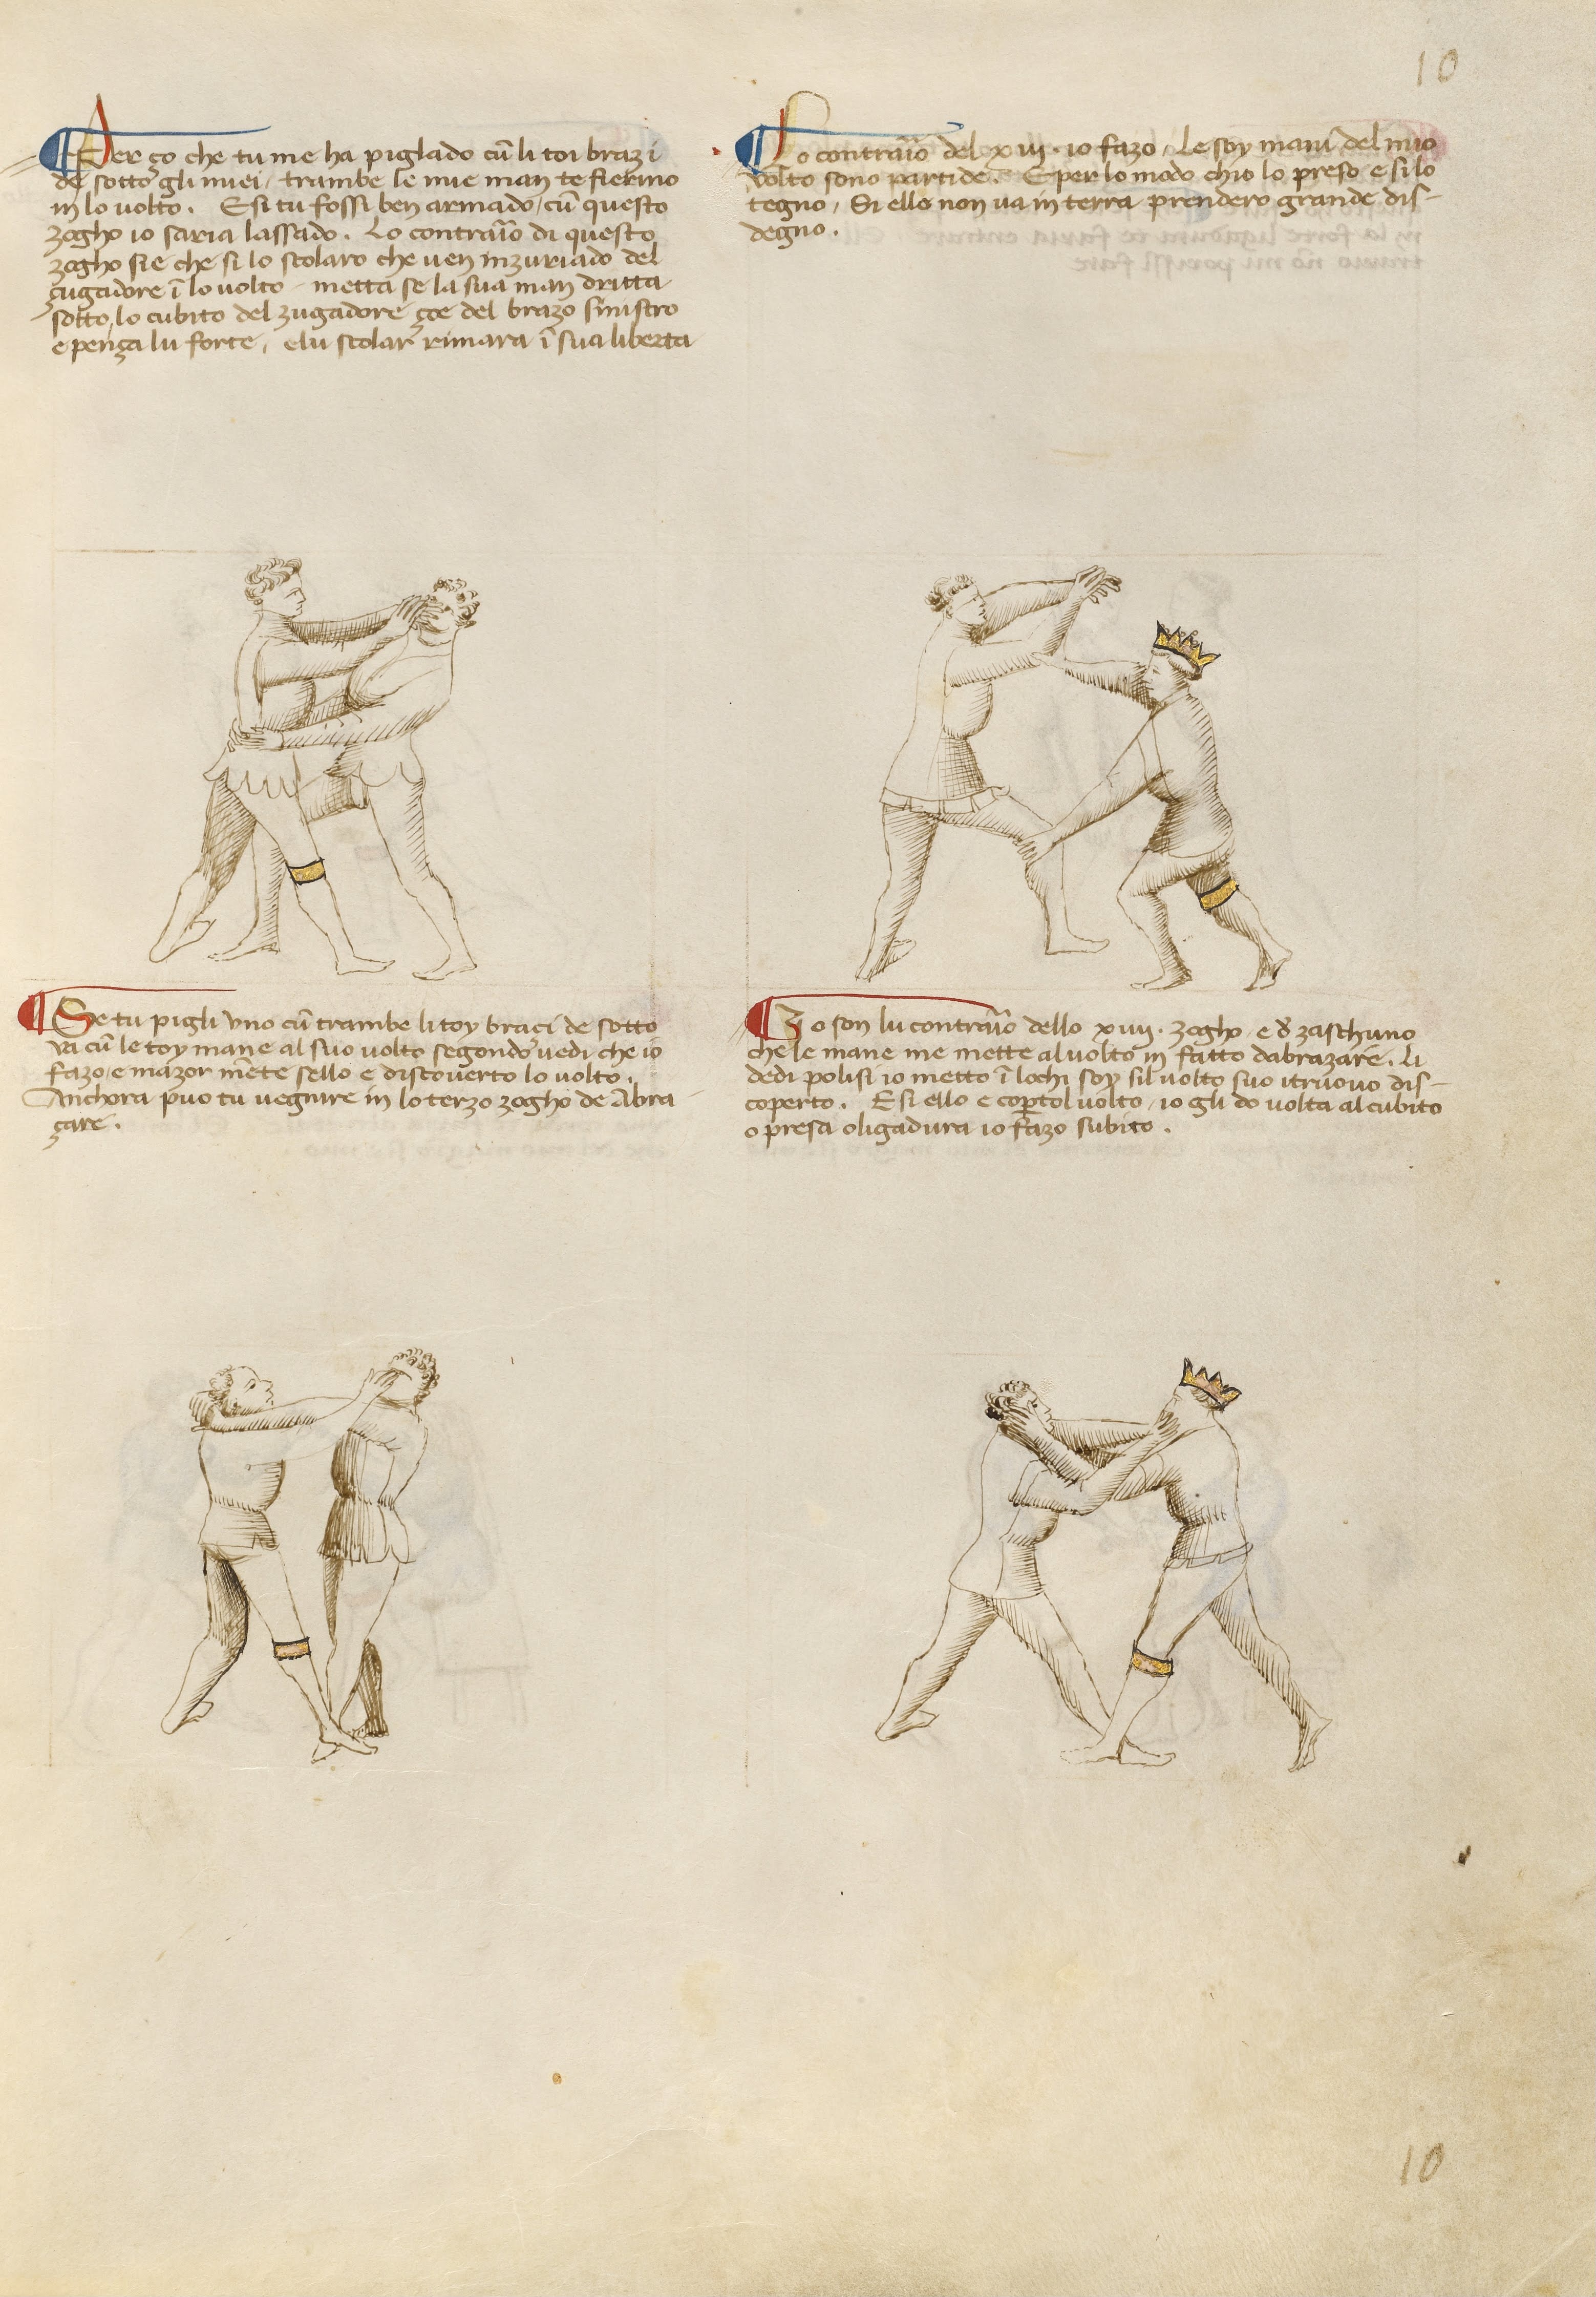 10
Per ço che tu me ha piglado cū li toi brazi
de sotto gli miei, trambe le mie man te fierino
in lo volto. E si tu fossi ben armado, cū questo
zogho io saria lassado. Lo contraīo di questo
zogho si e che si lo scolaro che ven inzuriado del
çugadore ī lo volto, metta se la sua man dritta
sotto lo cubito del zugadore çoe del brazo sinistro
e penza lu forte, e lu scolar rimara ī sua liberta
Lo contraīo del xiii. io fazo, Le soy mani del mio
volto sono partide. E per lo modo ch'io lo preso e si lo
tegno, Si ello non va in terra prendero grande dis-
degno.
Se tu pigli uno cū trambe li toy braci de sotto
va cū le toy mane al suo volto segondo vedi che io
fazo e mazormēte s'ello e discoverto lo volto.
Anchora poo tu vegnire in lo terzo zogho de Abra
çare.
Io son lu contraīo dello xiiii. zogho e d̄ zaschuno
che le mane me mette al volto in fatto d'abrazare. Li
dedi polisi io metto ī l'ochi soy si'l volto suo i' truovo dis-
coperto. E si ello e cop̄to'l volto, io gli do volta al cubito
o presa o ligadura io fazo subito.
10